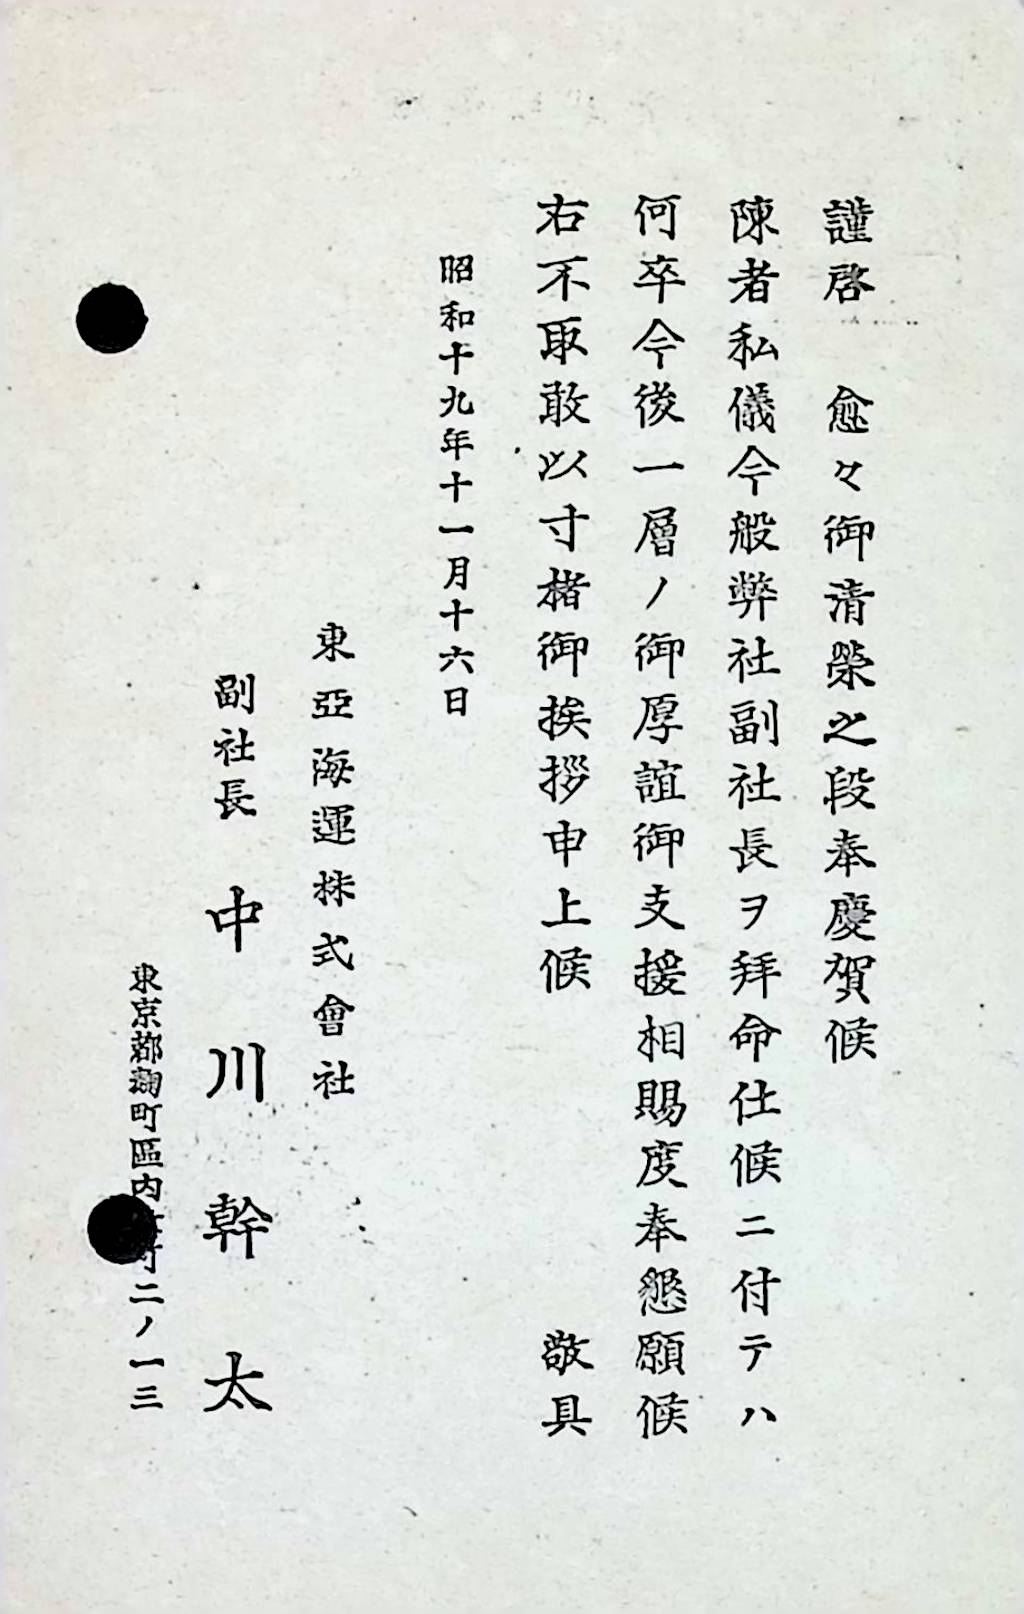 謹啓　愈々御清榮之段奉慶賀候
陳者私儀今般弊社副社長ヲ拜命仕候ニ付テハ
何卒今後一層ノ御厚誼御支援相賜度奉懇願候
右不取敢以寸楮御挨拶申上候　敬具
昭和十九年十一月十六日
東亞海運株式會社
副社長　中川幹太
東京都麹町區内町二ノ一三